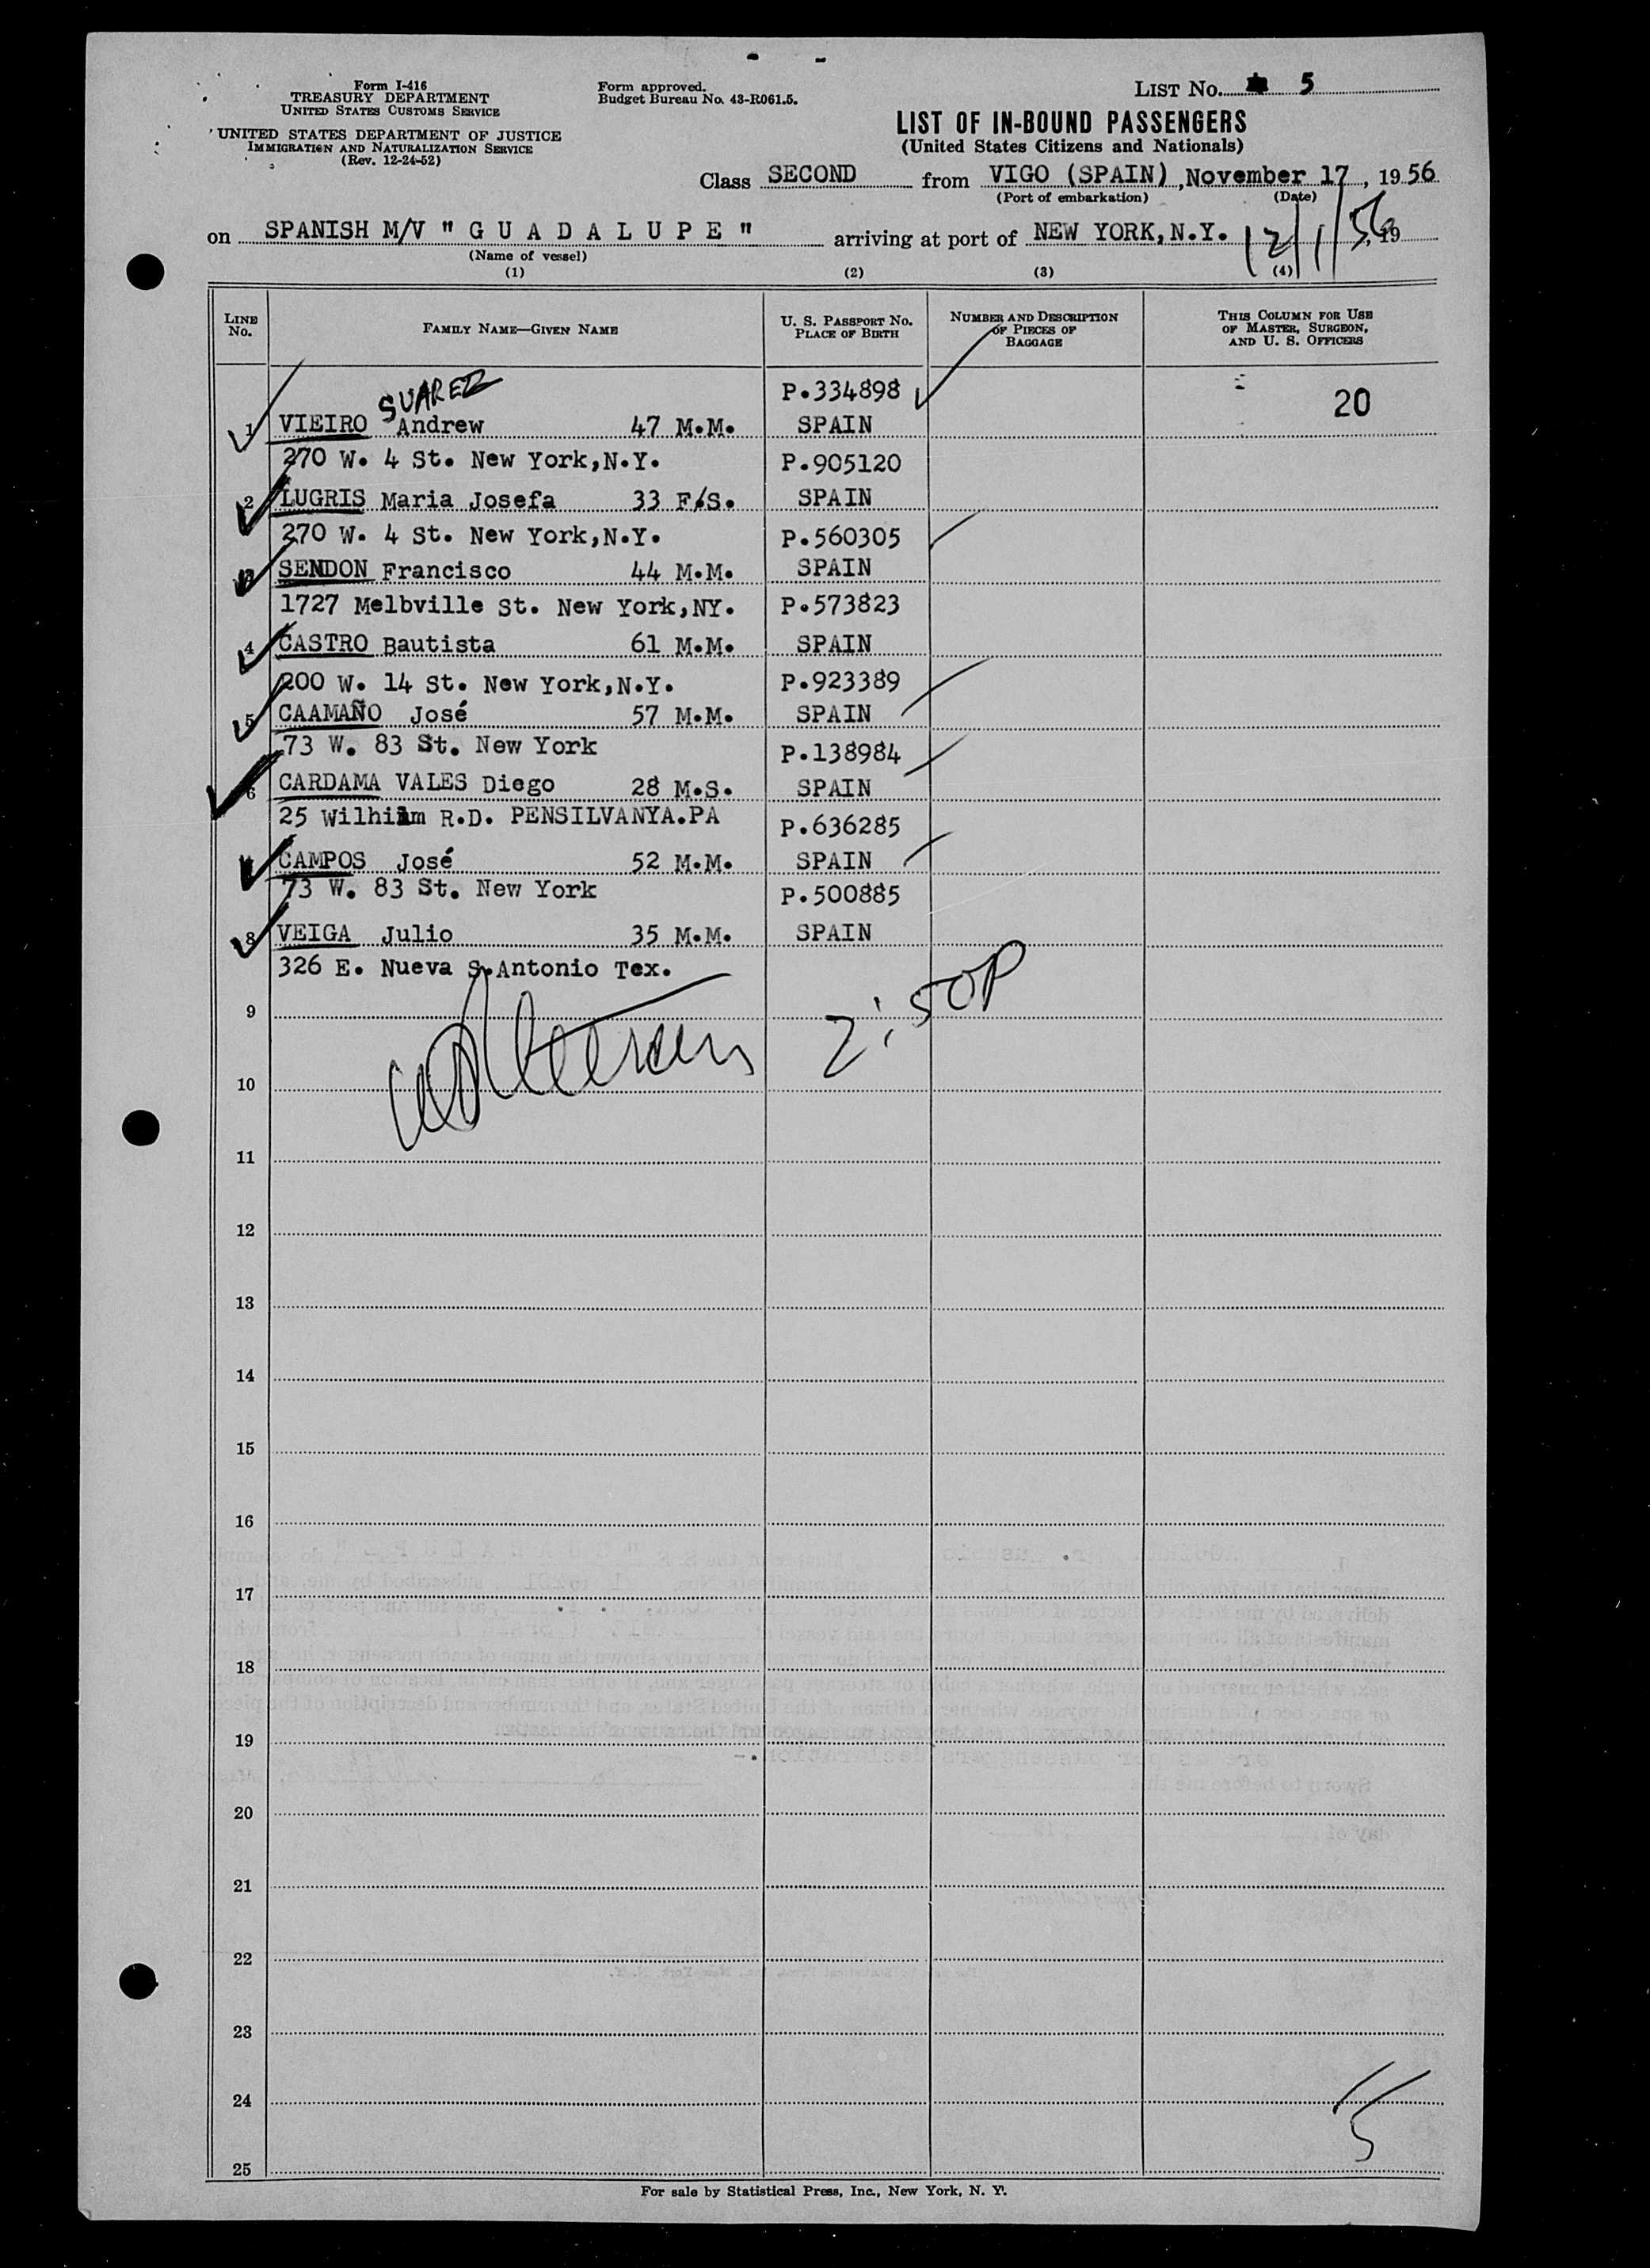 Form I-416
TREASURY DEPARTMENT
UNITED STATES CUSTOMS SERVICE
UNITED STATES DEPARTMENT OF JUSTICE
IMMIGRATION AND NATURALIZATION SERVICE
(Rev. 12-24-52)
Form approved.
Budget Bureau No. 43-R061.5.
LIST No. 5
LIST OF IN-BOUND PASSENGERS
(United States Citizens and Nationals)
Class SECOND from VIGO (SPAIN), November 17, 1956
(Port of embarkation) (Date)
on SPANISH M/V " G U A D A L U P E " arriving at port of NEW YORK, N.Y. 12/1/56, 19
(Name of vessel)
(1) (2) (3) (4)
LINE No. FAMILY NAME—GIVEN NAME U. S. PASSPORT No. PLACE OF BIRTH NUMBER AND DESCRIPTION OF PIECES OF BAGGAGE THIS COLUMN FOR USE OF MASTER, SURGEON, AND U. S. OFFICERS
SUAREZ P.334898 20
1 VIEIRO Andrew 47 M.M. SPAIN
270 W. 4 St. New York,N.Y. P.905120
2 LUGRIS Maria Josefa 33 F/S. SPAIN
270 W. 4 St. New York,N.Y. P.560305
3 SENDON Francisco 44 M.M. SPAIN
1727 Melbville St. New York,NY. P.573823
4 CASTRO Bautista 61 M.M. SPAIN
200 W. 14 St. New York,N.Y. P.923389
5 CAAMAÑO José 57 M.M. SPAIN
73 W. 83 St. New York P.138984
6 CARDAMA VALES Diego 28 M.S. SPAIN
25 Wilhiam R.D. PENSILVANYA.PA P.636285
CAMPOS José 52 M.M. SPAIN
73 W. 83 St. New York P.500885
8 VEIGA Julio 35 M.M. SPAIN
326 E. Nueva S.Antonio Tex.
2:50P
9
10
11
12
13
14
15
16
17
18
19
20
21
22
23
24
5
25
For sale by Statistical Press, Inc., New York, N. Y.